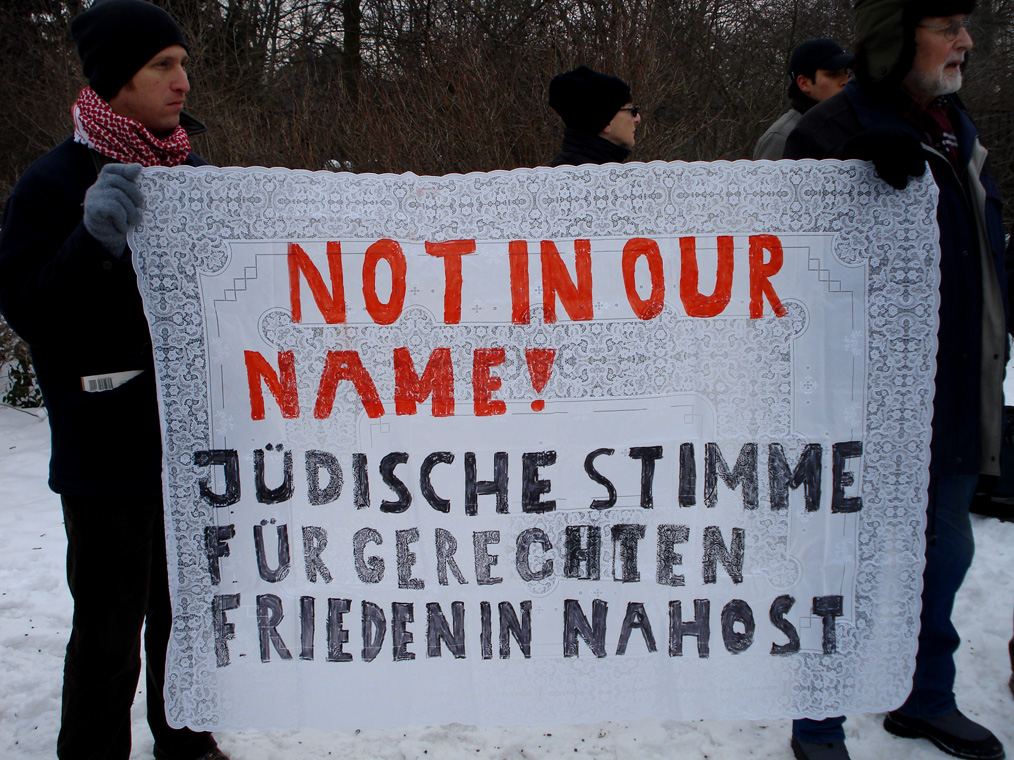 NOT IN OUR
NAME!
JÜDISCHE STIMME
FÜR GERECHTEN
FRIEDEN IN NAHOST